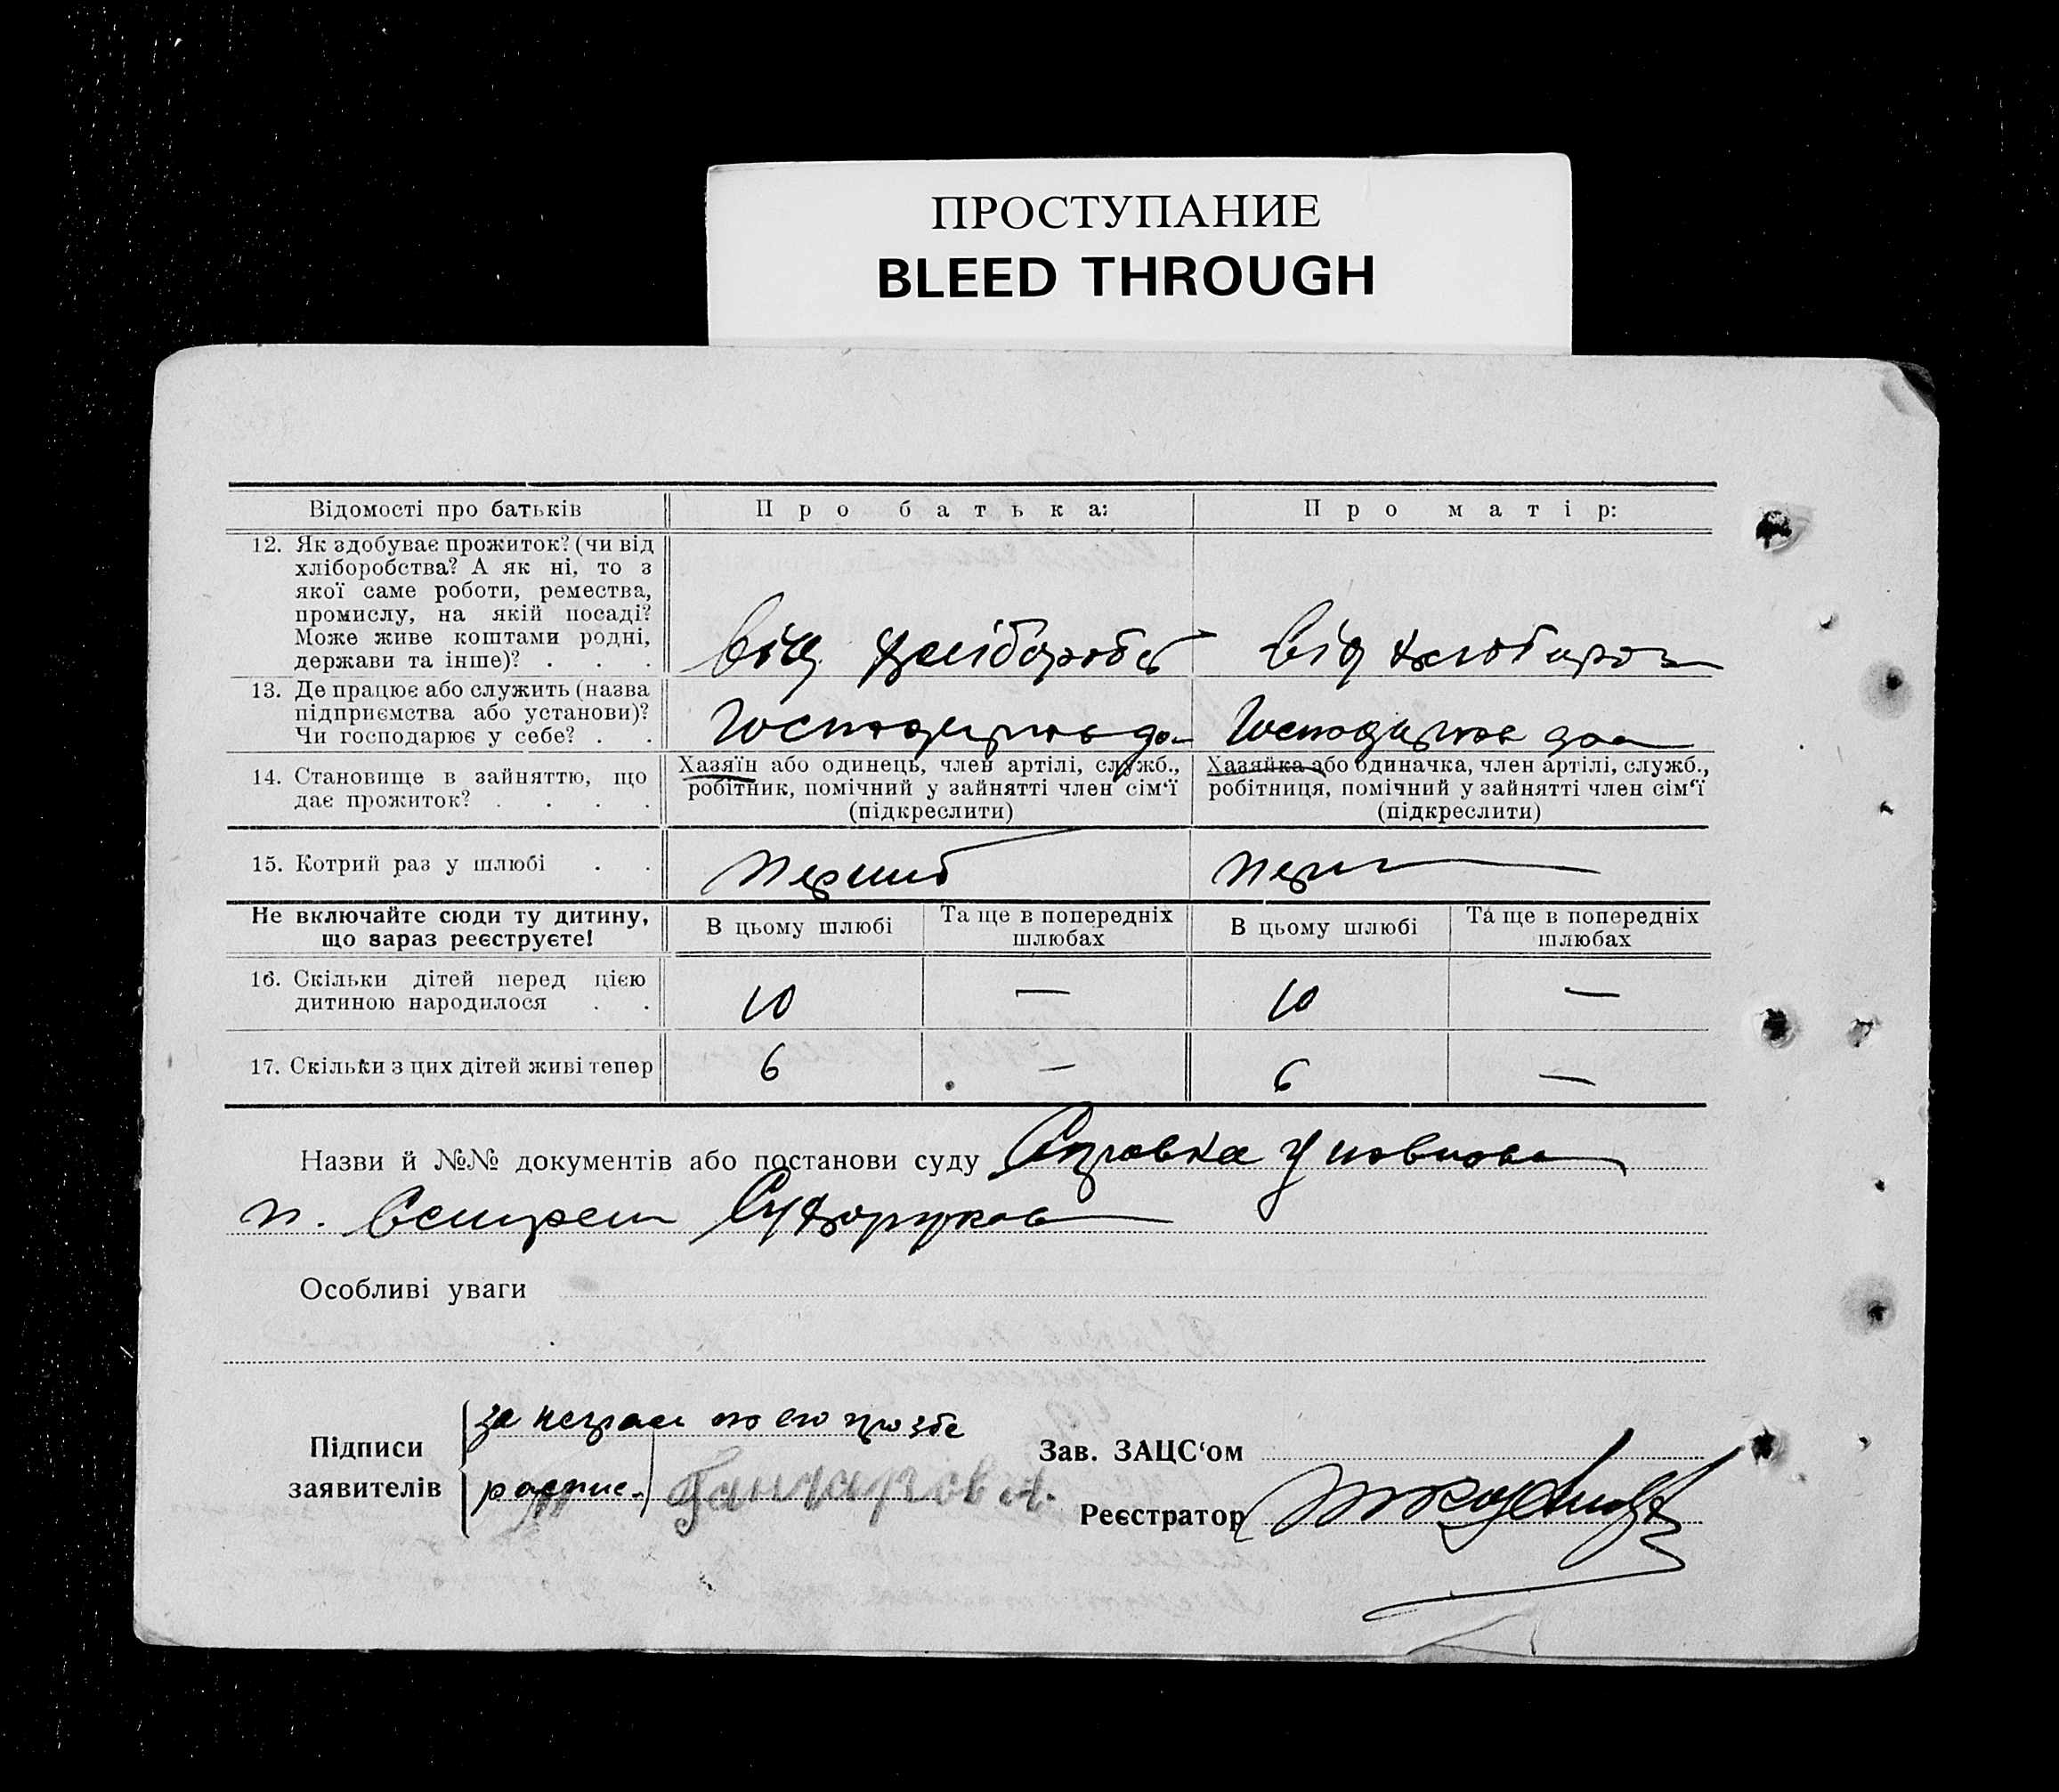 ПРОСТУПАНИЕ
BLEED THROUGH
Відомості про батьків
Про батька:
Про матір:
12. Як здобуває прожиток? (чи від
хліборобства? А як ні, то з
якої саме роботи, ремества,
промислу, на якій посаді?
Може живе коштами родні,
держави та інше)? . . .
від хлібороб
від хлібороб
13. Де працює або служить (назва
підприємства або установи)?
Чи господарює у себе? . .
14. Становище в зайняттю, що
дає прожиток? . . . .
Хазяїн або одинець, член артілі, служб.,
робітник, помічний у зайнятті член сім‘ї
(підкреслити)
Хазяйка або одиначка, член артілі, служб.,
робітниця, помічний у зайнятті член сім‘ї
(підкреслити)
15. Котрий раз у шлюбі . .
перший
перш
Не включайте сюди ту дитину,
що зараз реєструєте!
В цьому шлюбі
Та ще в попередніх
шлюбах
В цьому шлюбі
Та ще в попередніх
шлюбах
16. Скільки дітей перед цією
дитиною народилося . .
10 — 10 —
17. Скільки з цих дітей живі тепер
6 — 6 —
Назви й №№ документів або постанови суду Справка
Особливі уваги
Підписи
заявителів
за неграм по его прозбе
распис.
Ганчаров А.
Зав. ЗАЦС‘ом
Реєстратор